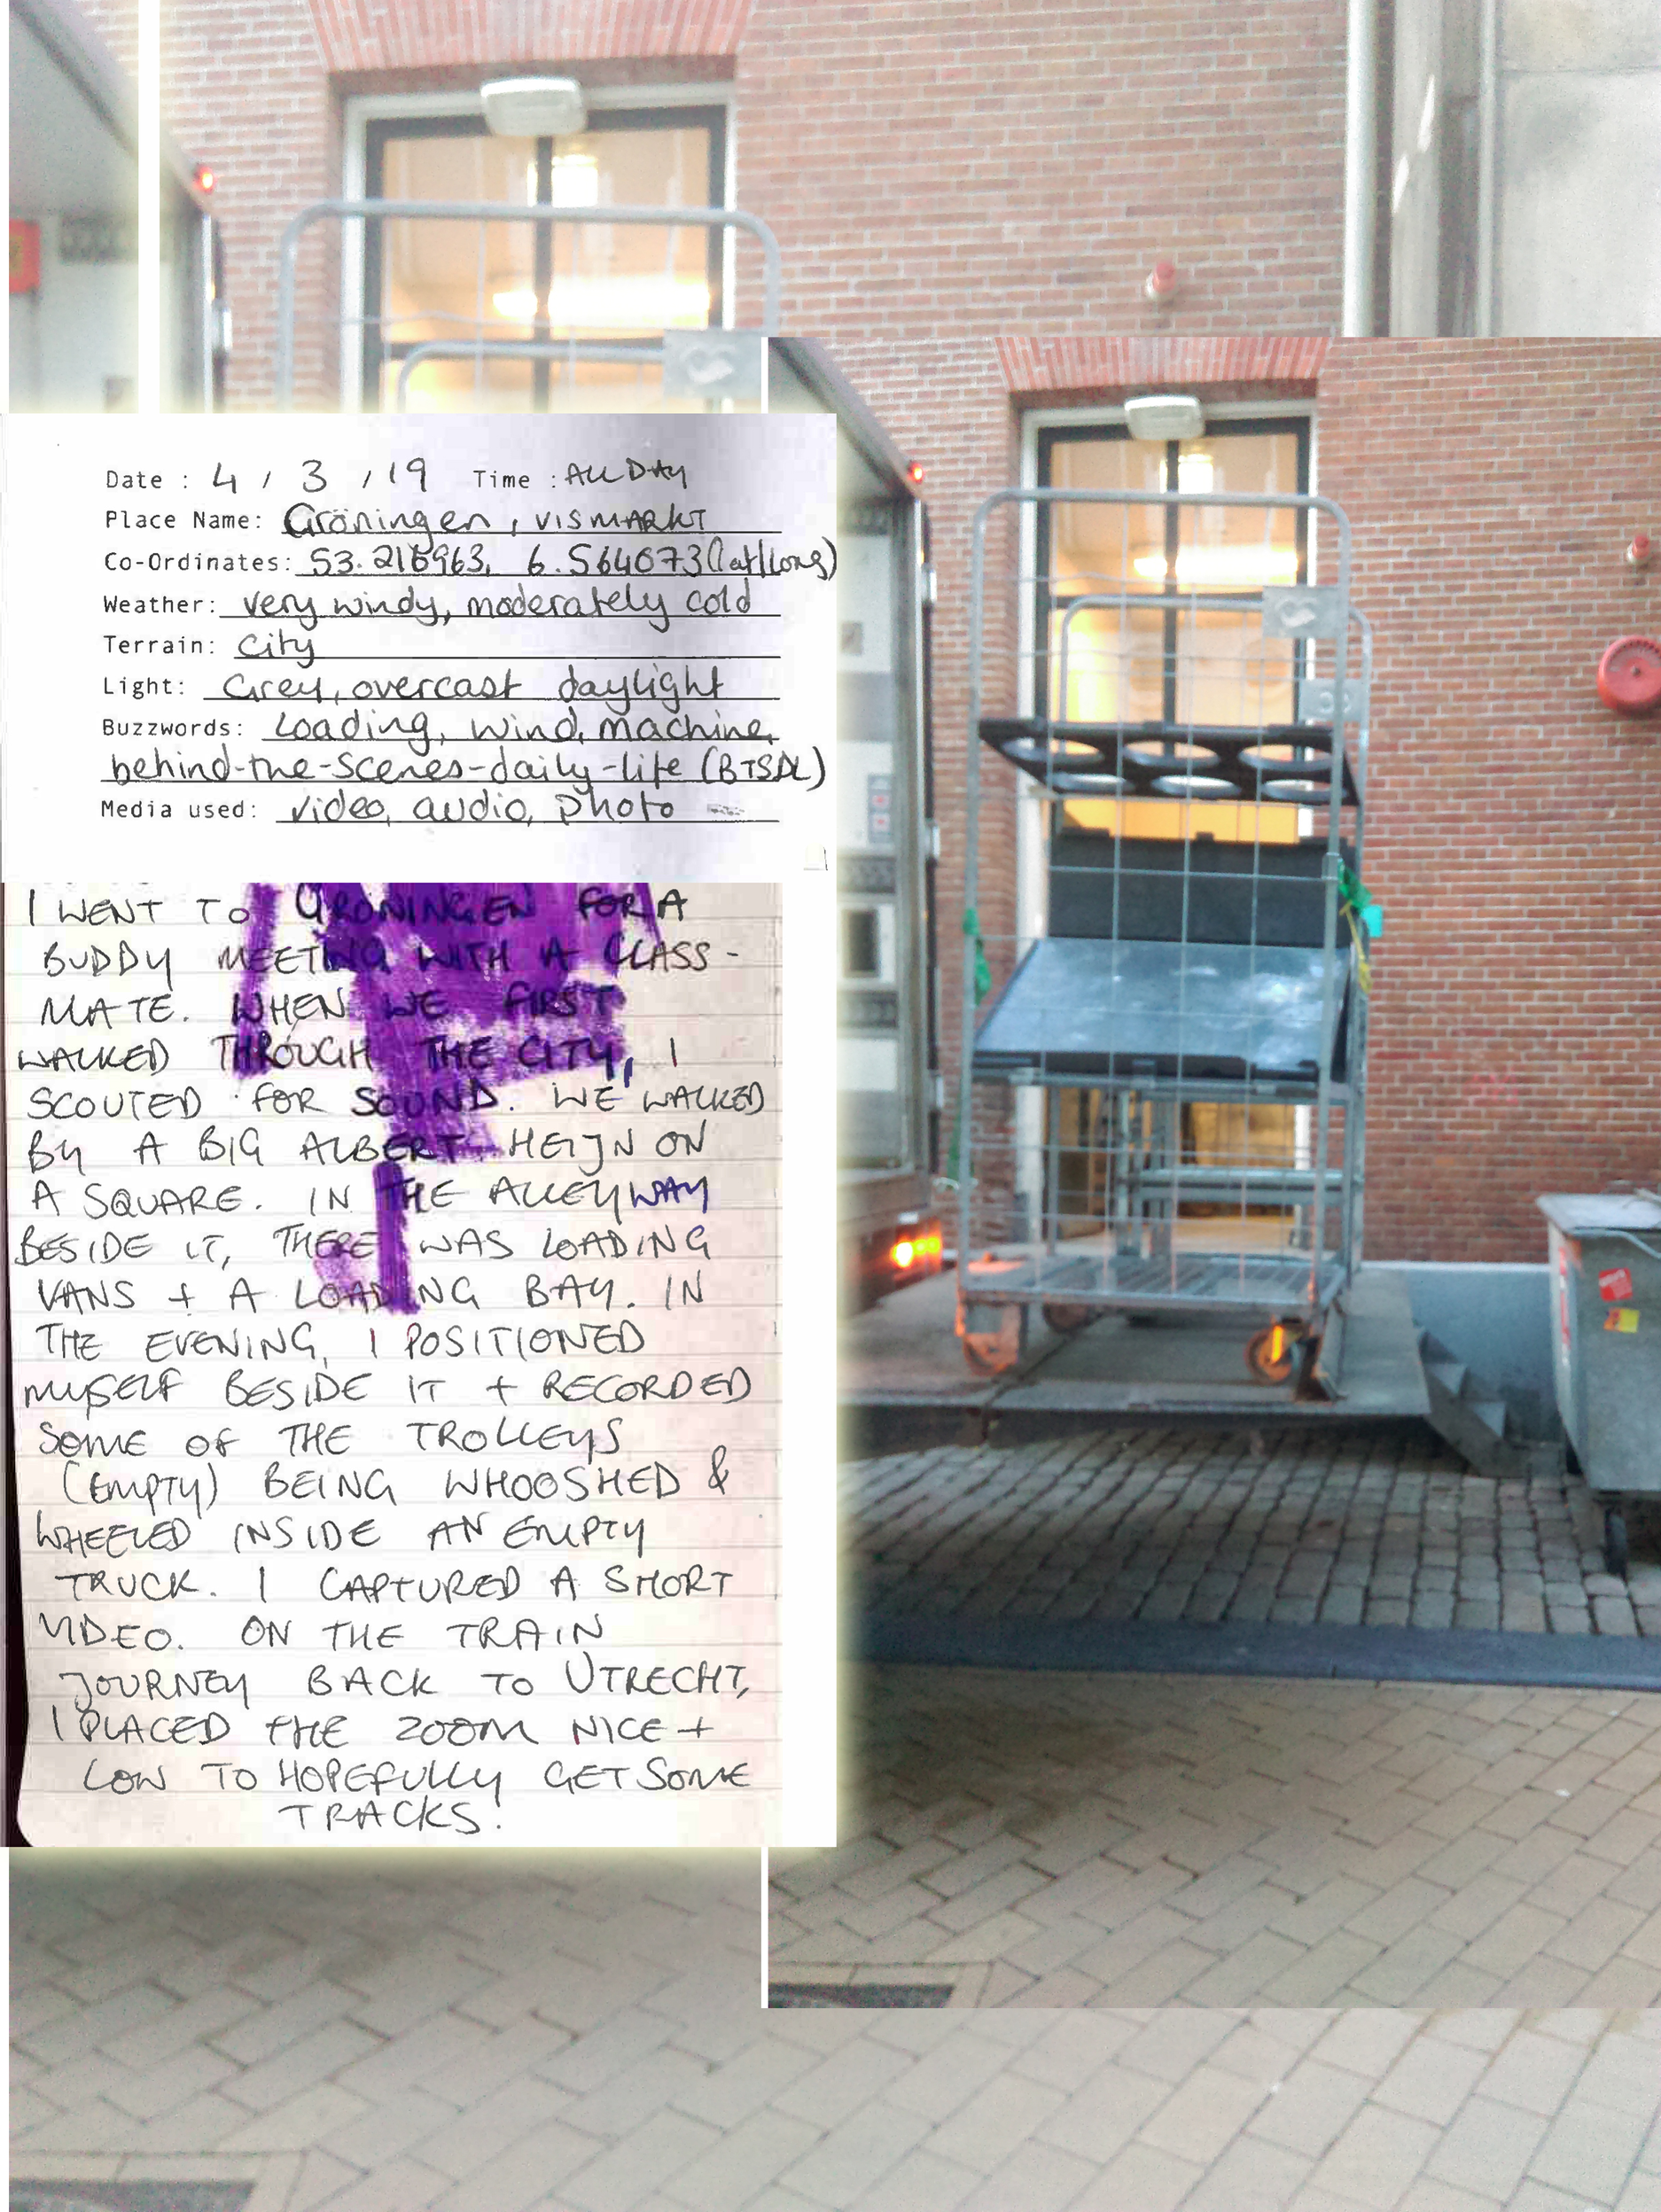 Date : 4 / 3 / 19 Time : ALL DAY
Place Name: Gröningen, VISMARKT
Co-Ordinates: 53.216963, 6.564073 (lat/long)
Weather: very windy, moderately cold
Terrain: City
Light: Grey, overcast daylight
Buzzwords: Loading, wind, machine,
behind-the-scenes-daily-life (BTSDL)
Media used: video, audio, photo
I WENT TO GRÖNINGEN FOR A
BUDDY MEETING WITH A CLASS-
MATE. WHEN WE FIRST
WALKED THROUGH THE CITY, I
SCOUTED FOR SOUND. WE WALKED
BY A BIG ALBERT HEIJN ON
A SQUARE. IN THE ALLEYWAY
BESIDE IT, THERE WAS LOADING
VANS + A LOADING BAY. IN
THE EVENING, I POSITIONED
MYSELF BESIDE IT + RECORDED
SOME OF THE TROLLEYS
(EMPTY) BEING WHOOSHED &
WHEELED INSIDE AN EMPTY
TRUCK. I CAPTURED A SHORT
VIDEO. ON THE TRAIN
JOURNEY BACK TO UTRECHT,
I PLACED THE ZOOM NICE +
LOW TO HOPEFULLY GET SOME
TRACKS!